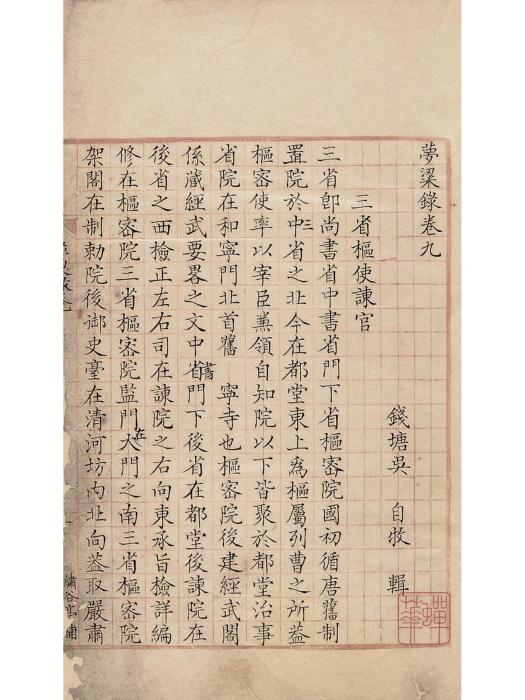 夢梁錄卷九
錢塘吳 自牧 輯
三省樞使諫官
三省卽尚書省中書省門下省樞密院國初循唐舊制
置院於中三省之北今在都堂東上為樞屬列曹之所蓋
樞密使率以宰臣兼領自知院以下皆聚於都堂治事
省院在和寧門北首舊 寧寺也樞密院後建經武閣
係藏經武要畧之文中書省門下後省在都堂後諫院在
後省之西檢正左右司在諫院之右向東承旨檢詳編
修在樞密院三省樞密院監門在大門之南三省樞密院
架閣在制勅院後御史臺在清河坊內北向蓋取嚴肅